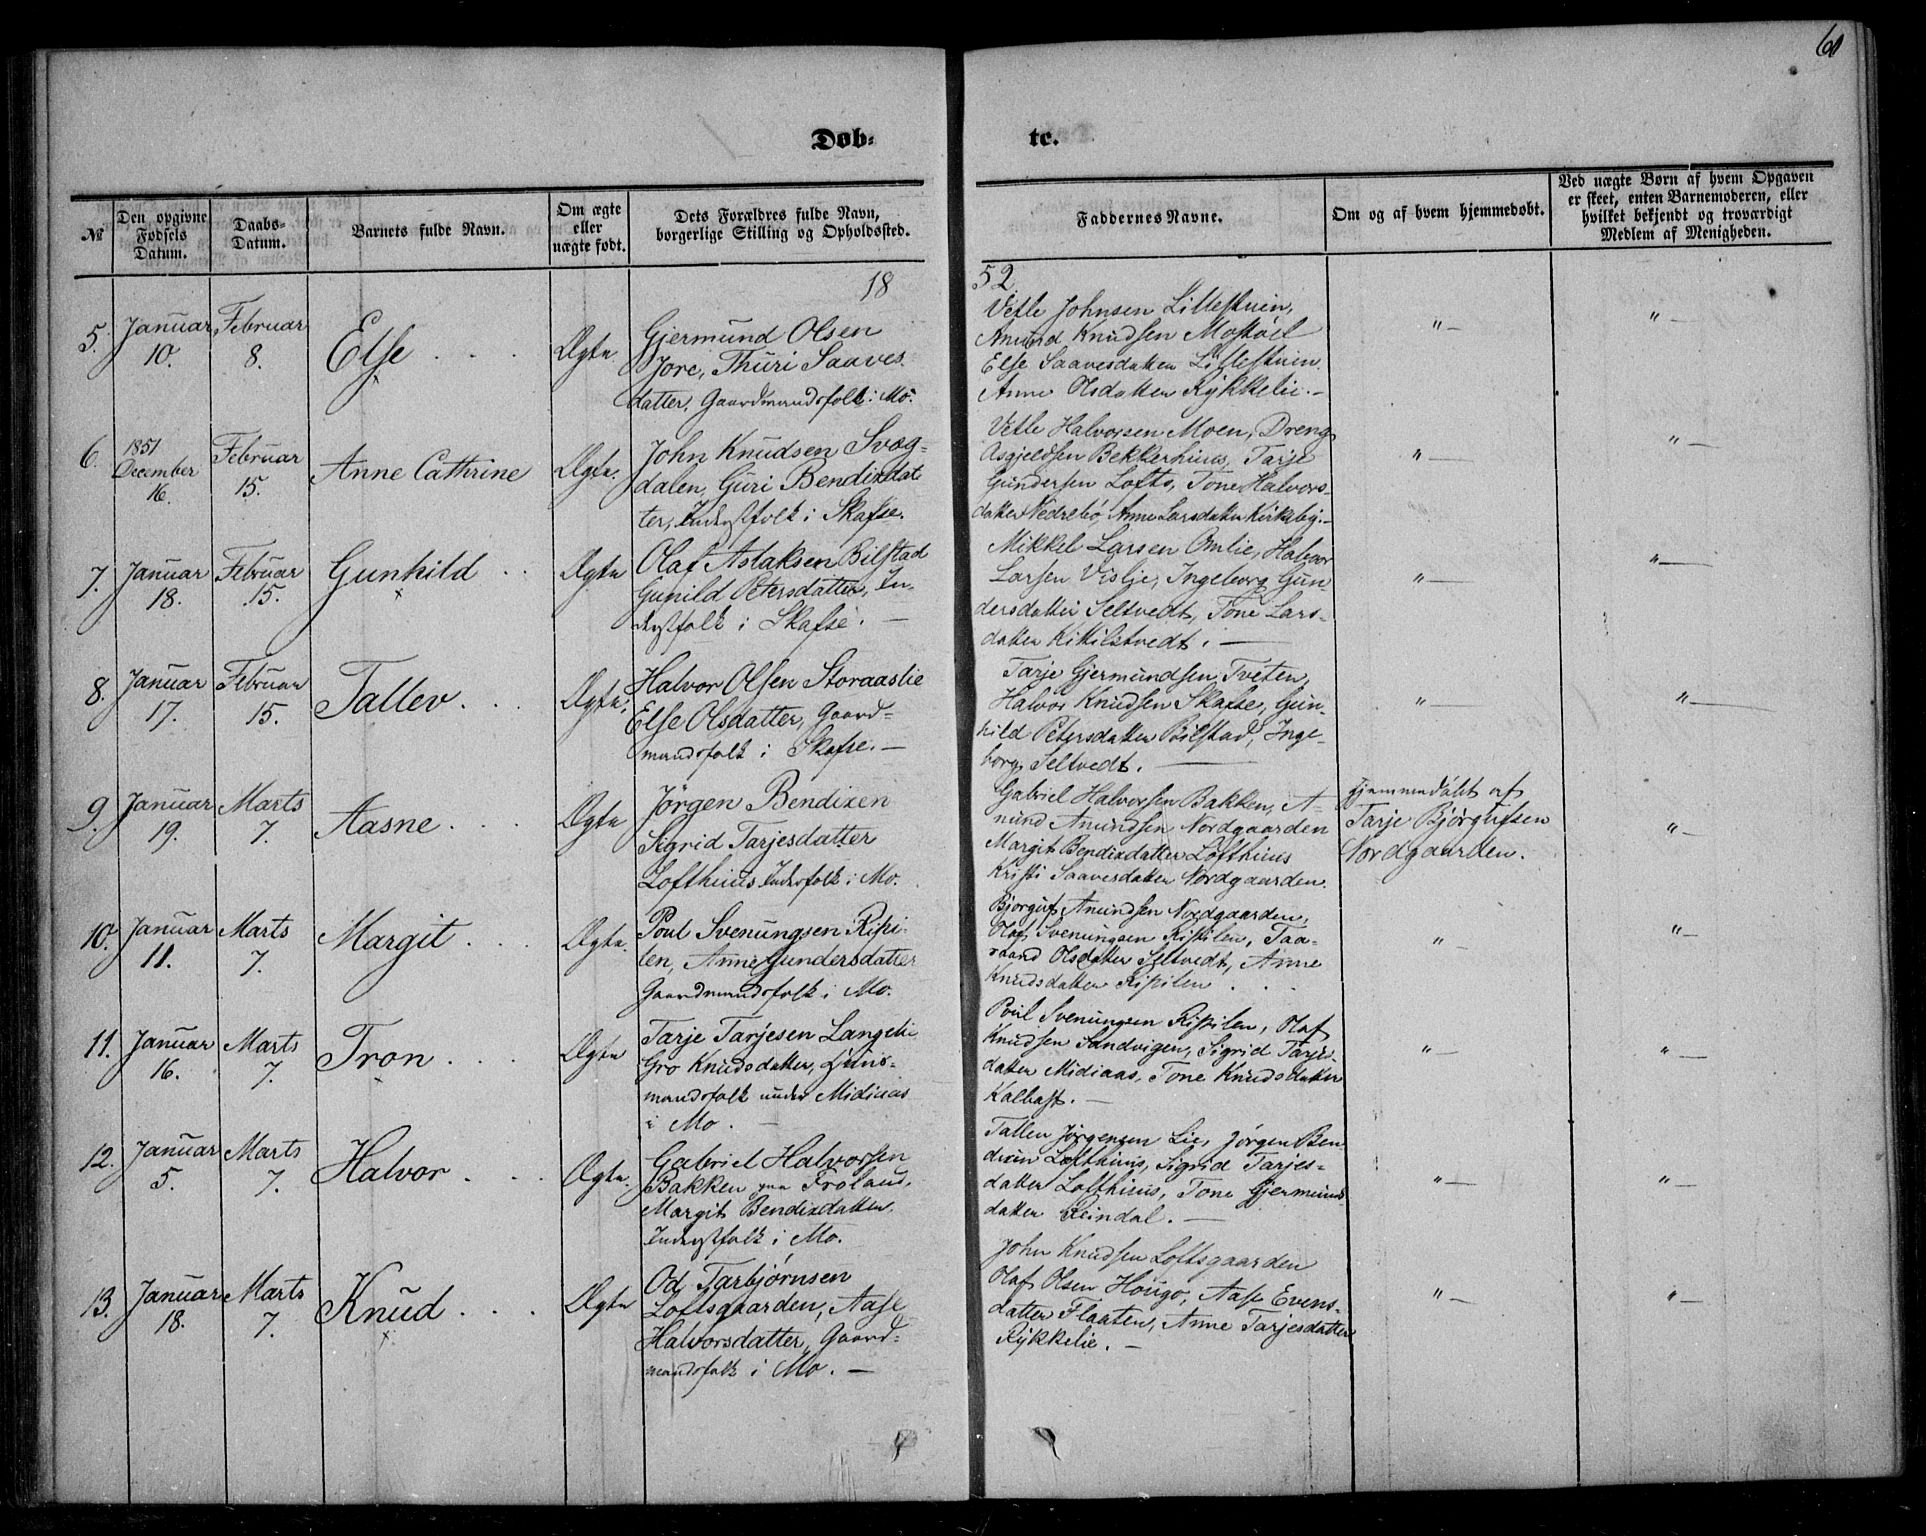 60
Døb-
te.
№
Den opgivne
Fødsels
Datum.
Daabs-
Datum.
Barnets fulde Navn.
Om ægte
eller
uægte født.
Dets Forældres fulde Navn,
borgerlige Stilling og Opholdssted.
Faddernes Navne.
Om og af hvem hjemmedøbt.
Ved uægte Børn af hvem Opgaven
er skeet, enten Barnemoderen, eller
hvilket bekjendt og troværdigt
Medlem af Menigheden.
18
52
5.
Januar
10.
Februar
8.
Else
Ægte
Gjermund Olsen
Jore, Thuri Saaves
datter, Gaardmandsfolk i Mo.
Vetle Johnsen Lillestuen,
Amund Knudsen Mostøel
Else Saavesdatter Lillestuen
Anne Olsdatter Rykkelie.
"—
"—
6.
1851
December
16.
Februar
15.
Anne Cathrine
Ægte.
John Knudsen Svæg-
dalen, Guri Bendixdat
ter, Inderstfolk i Skafse.
Vetle Halvorsen Moen, Dreng
Asgjeldsen Bekkerhuus, Tarje
Gundersen Lofts, Tone Halvors-
datter Nedrebø, Anne Larsdatter Kirkeby.
"—
"—
7.
Januar
18.
Februar
15.
Gunhild
Ægte
Olaf Aslaksen Bilstad
Gunild Petersdatter, In-
derstfolk i Skafse.
Mikkel Larsen Omlie, Halvor
Larsen Vislie, Ingeborg Gun
dersdatter Seltvedt, Tone Lars-
datter Kikilstvedt.
"—
"—
8.
Januar
17.
Februar
15.
Tallev
Ægte.
Halvor Olsen Storaaslie
Else Olsdatter, Gaard-
mandsfolk i Skafse.
Tarje Gjermundsen Tveten,
Halvor Knudsen Skafse, Gun-
hild Petersdatter Bilstad, Inge-
borg Seltvedt.
"—
"—
9.
Januar
19.
Marts
7.
Aasne
Ægte
Jörgen Bendixen
Sigrid Tarjesdatter
Lofthuus Inderfolk i Mo.
Gabriel Halvorsen Bakken, A-
mund Amundsen Nordgaarden
Margit Bendixdatter Lofthuus
Kristi Saavesdatter Nordgaarden.
Hjemmendöbt af
Tarje Björgufsen
Nordgaarden.
"—
10.
Januar
11.
Marts
7.
Margit
Ægte.
Poul Svenungsen Ripi-
len, Anne Gundersdatter
Gaardmandsfolk i Mo.
Bjorguf Amundsen Nordgaarden,
Olaf Svenungsen Ripilen, Taa-
raand Olsdatter Seltvedt, Anne
Knudsdatter Ripilen
"—
"—
11.
Januar
16.
Marts
7.
Tron
Ægte
Tarje Tarjesen Langelie
Gro Knudsdatter, Huus-
mandsfolk under Midiaas
i Mo.
Poul Svenungsen Ripilen, Olaf
Knudsen Sandvigen, Sigrid Tarjes-
datter Midiaas, Tone Knudsdatter
Kalhaft.
"—
"—
12.
Januar
5.
Marts
7.
Halvor
Ægte.
Gabriel Halvorsen
Bakken paa Froland,
Margit Bendixdatter
Inderstfolk i Mo.
Tallev Jörgensen Lie, Jörgen Ben
dixen Lofthuus, Sigrid Tarjes-
datter Lofthuus, Tone Gjermunds
datter Reindal.
"—
"—
13.
Januar
18.
Marts
7.
Knud
Ægte
Od Tarbjørnsen
Loftsgaarden, Aase
Halvorsdatter, Gaard-
mandsfolk i Mo.
John Knudsen Loftsgaarden
Olaf Olsen Hougo, Aase Evens-
datter Flaaten, Anne Tarjesdatter
Rykkelie.
"—
"—